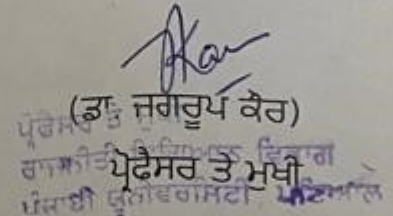 (ਡਾ. ਜਗਰੂਪ ਕੌਰ)
ਪ੍ਰੋਫੈਸਰ ਤੇ
ਪ੍ਰੋਫੈਸਰ ਤੇ ਮੁਖੀ
ਰਾਜਨੀਤੀ ਵਿਗਿਆਨ ਵਿਭਾਗ
ਪੰਜਾਬੀ ਯੂਨੀਵਰਸਿਟੀ ਪਟਿਆਲਾ